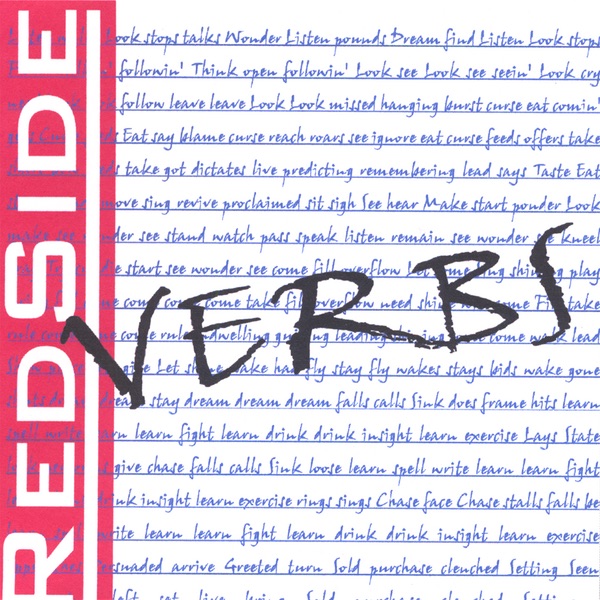 REDSIDE
VERBS
look stops talks Wonder Listen pounds Dream find Listen Look stops
followin' Think open followin' Look see Look see seein' Look cry
follow leave leave Look Look missed hanging burst curse eat comin'
Eat say blame curse reach roars see ignore eat curse feeds offers take
take got dictates live predicting remembering lead says Taste Eat
move sing revive proclaimed sit sigh See hear Make start ponder Look
make see wonder see stand watch pass speak listen remain see wonder kneel
start see wonder see come fill overflow Let shining play
come come come take fill overflow need come take
come rule indwelling leading come walk lead
give Let make fly stay fly wakes stays bids wake gone
stay dream dream dream falls calls Sink does frame hits learn
learn fight learn drink drink insight learn exercise Lays State
give chase falls calls Sink loose learn spell write learn learn fight
drink insight learn exercise rings sings Chase face Chase stalls falls be
write learn learn fight learn drink drink insight learn exercise
persuaded arrive Greeted turn Sold purchase clenched Setting Seen